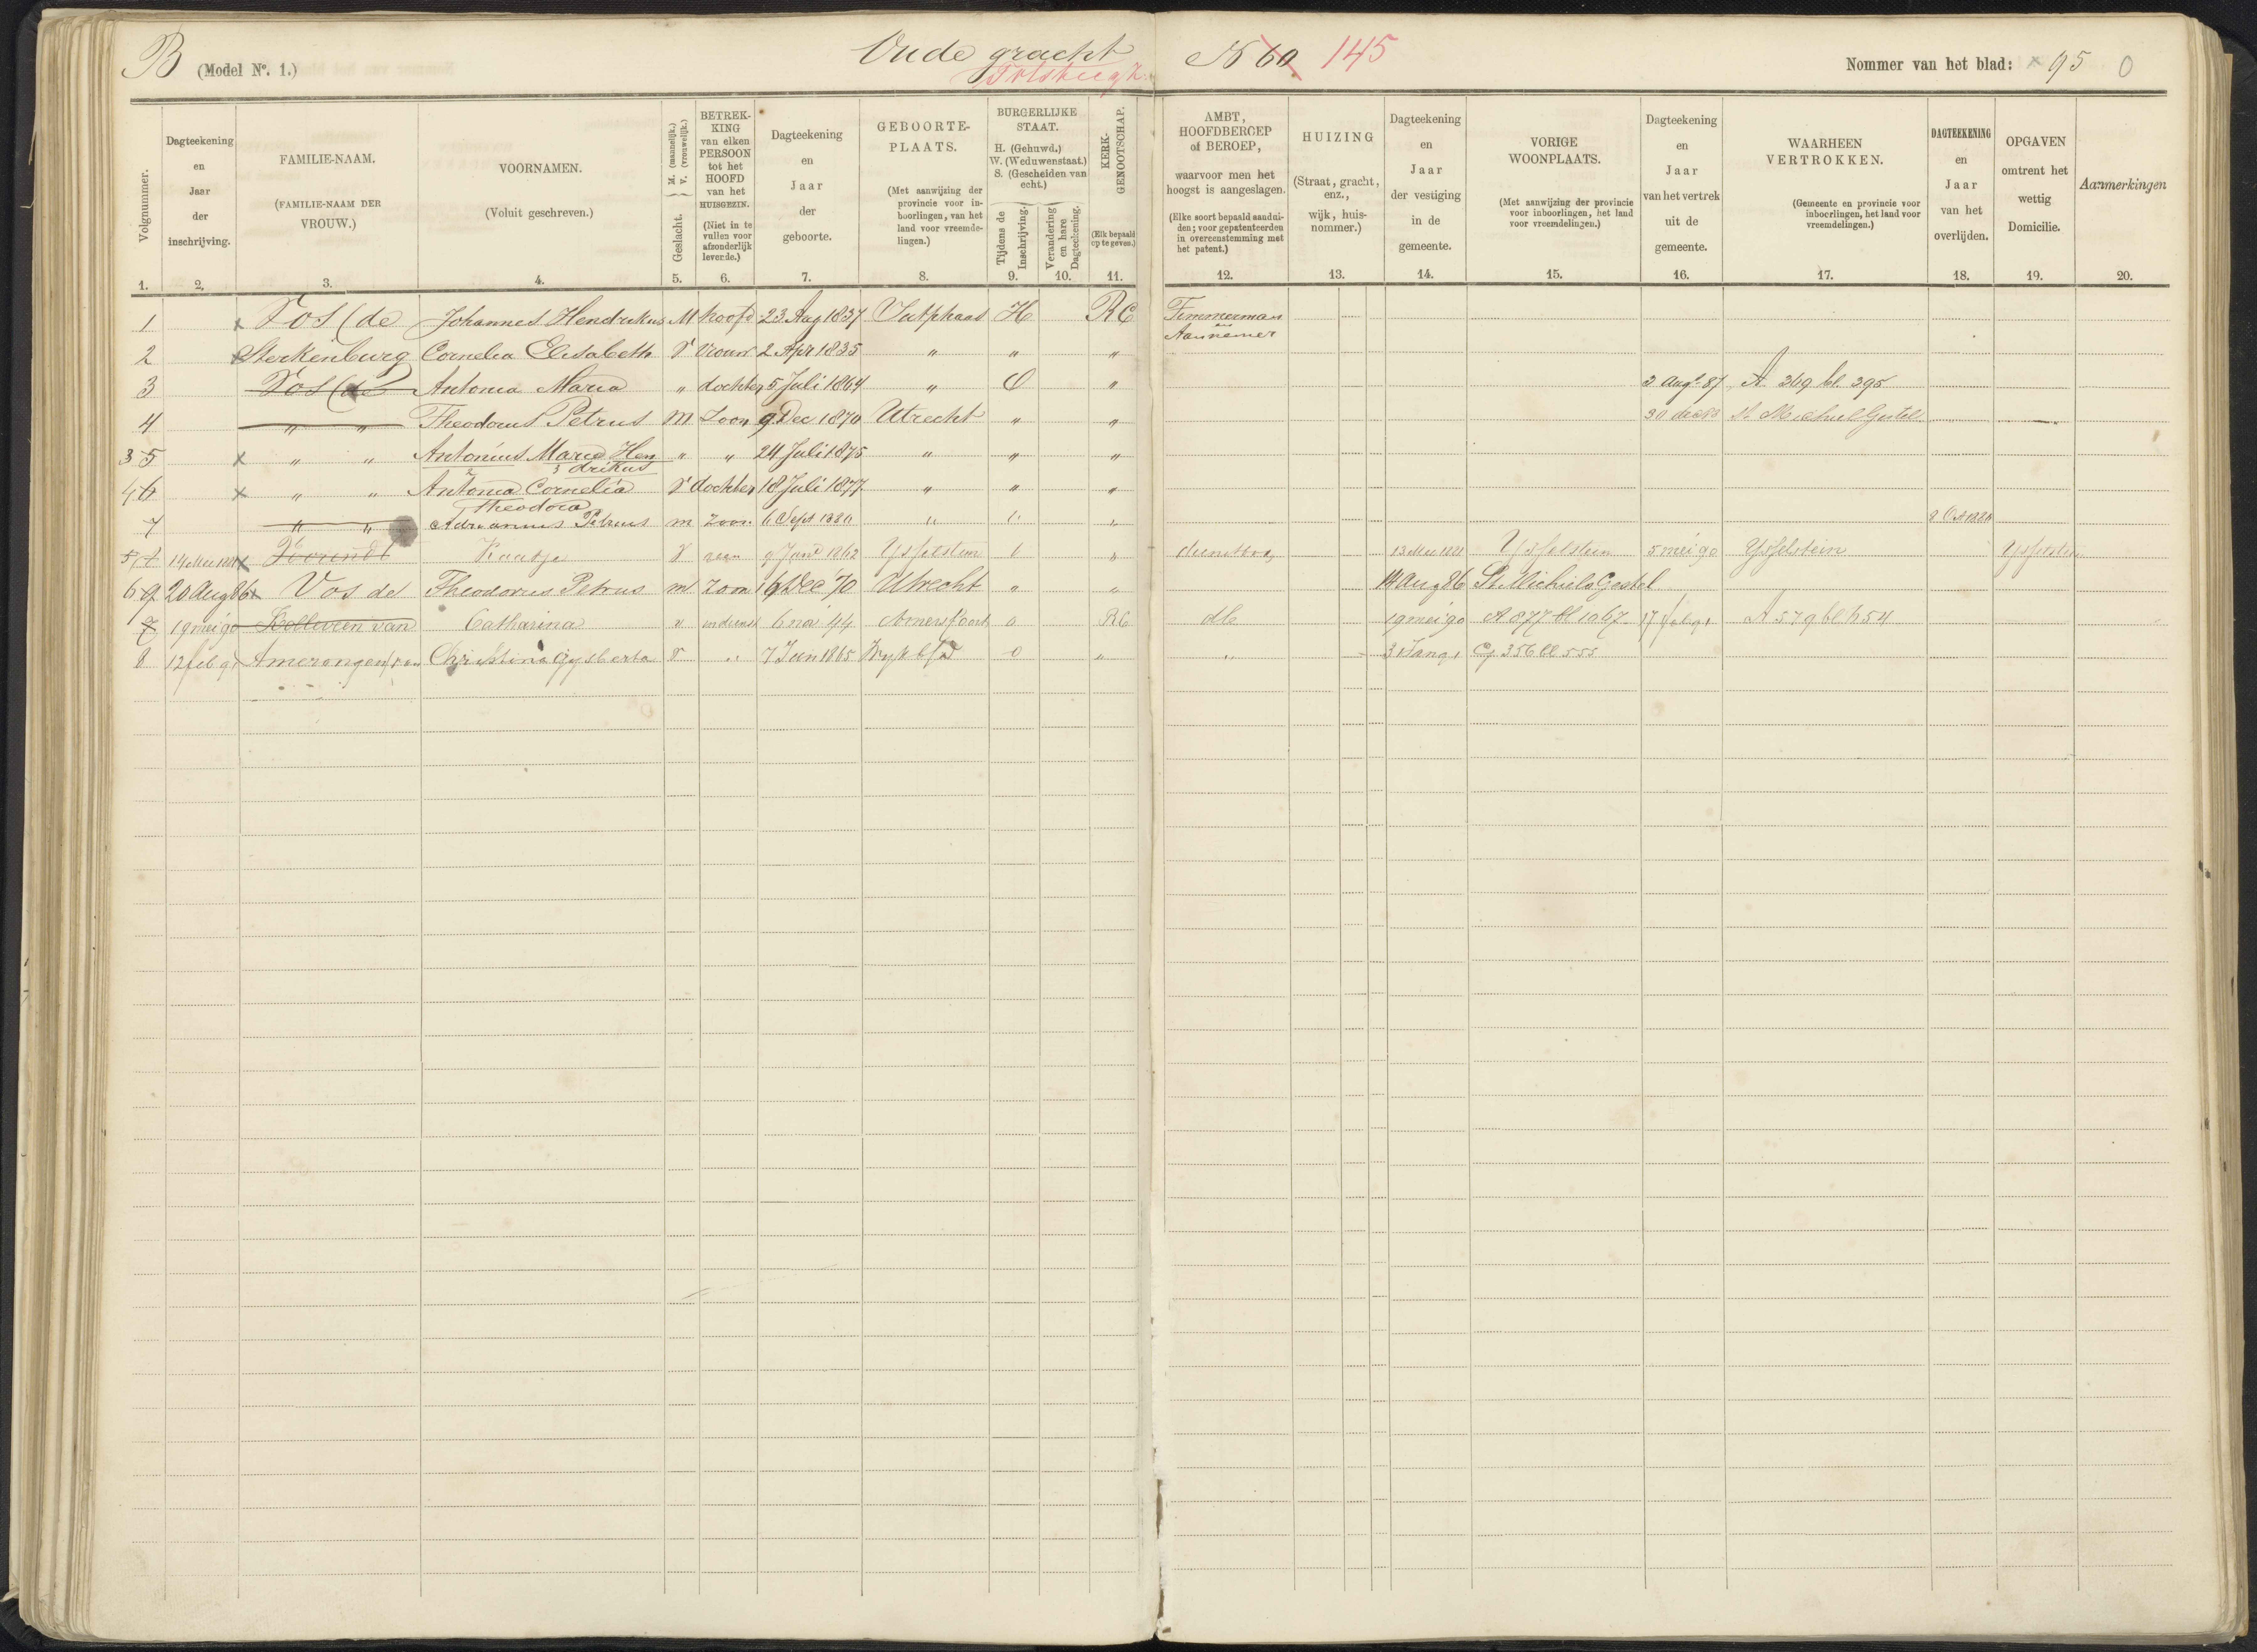 B (Model Nº. 1.) Oude gracht N 60 145 Nommer van het blad: 95 0
Tolsteegz.
1. Volgnummer.
2. Dagteekening en Jaar der inschrijving.
3. FAMILIE-NAAM. (FAMILIE-NAAM DER VROUW.)
4. VOORNAMEN. (Voluit geschreven.)
5. Geslacht. M. (mannelijk.) V. (vrouwelijk.)
6. BETREKKING van elken PERSOON tot het HOOFD van het HUISGEZIN. (Niet in te vullen voor afzonderlijk levende.)
7. Dagteekening en Jaar der geboorte.
8. GEBOORTE-PLAATS. (Met aanwijzing der provincie voor inboorlingen, van het land voor vreemdelingen.)
BURGERLIJKE STAAT. H. (Gehuwd.) W. (Weduwenstaat.) S. (Gescheiden van echt.)
9. Tijdens de Inschrijving.
10. Verandering en hare Dagteekening.
11. KERK-GENOOTSCHAP. (Elk bepaald op te geven.)
12. AMBT, HOOFDBEROEP of BEROEP, waarvoor men het hoogst is aangeslagen. (Elke soort bepaald aanduiden; voor gepatenteerden in overeenstemming met het patent.)
13. HUIZING (Straat, gracht, enz., wijk, huisnommer.)
14. Dagteekening en Jaar der vestiging in de gemeente.
15. VORIGE WOONPLAATS. (Met aanwijzing der provincie voor inboorlingen, het land voor vreemdelingen.)
16. Dagteekening en Jaar van het vertrek uit de gemeente.
17. WAARHEEN VERTROKKEN. (Gemeente en provincie voor inboorlingen, het land voor vreemdelingen.)
18. DAGTEEKENING en Jaar van het overlijden.
19. OPGAVEN omtrent het wettig Domicilie.
20. Aanmerkingen
1 x Vos (de Johannes Hendrikus M hoofd 23 Aug 1837 Jutphaas H RC Timmerman en Aannemer
2 x Sterkenburg Cornelia Elisabeth V Vrouw 2 Apr 1835 " " "
3 Vos (de Antonia Maria " dochter 5 Juli 1864 " O " 3 Aug 87 A 369 bl. 395
4 " " Theodorus Petrus M Zoon 9 Dec 1870 Utrecht " " St Michiel Gestel
3 5 x " " Antonius Maria Hendrikus " " 24 Juli 1875 " " "
4 6 x " " Antonia Cornelia Theodora V dochter 18 Juli 1877 " " "
7 " " Adrianus Petrus m zoon 6 Sept 1880 " " " 8 Oct 1880
5 Kaatje V geen 9 Jan 1862 Ysselstein " dienstbode Ysselstein 5 mei 90 Ysselstein Ysselstein
6 9 20 Aug 86 x Vos de Theodorus Petrus m zoon Dec 70 Utrecht " " 14 Aug 86 St Michiels Gestel
7 19 mei 90 van Catharina v indienst 6 nov 44 Amersfoort o RC db 19 mei 90 A 877 bl 1067 17 feb 91 A 579 bl 654
8 12 feb 91 Amerongen (van Christina Gijsberta V " 7 Jan 1865 o " " 31 Jan 91 G 356 bl 555